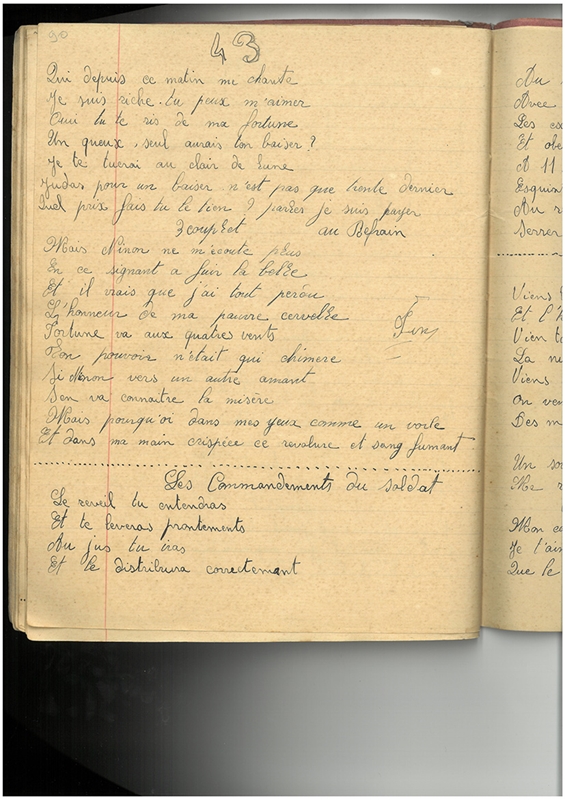 90
43
Qui depuis ce matin me chante
Je suis riche. tu peux m'aimer
Oui tu te ris de ma fortune
Un gueux, seul aurais ton baiser?
Je te tuerai au clair de lune
Judas pour un baiser n'est pas que trente dernier
Quel prix fais tu le tien ? parles je suis payer
3 couplet au Refrain
Mais Ninon ne m'écoute plus
En ce signant a fuir la belle
Et il vrais que j'ai tout perdu
L'honneur de ma pauvre cervelle
Fortune va aux quatre vents
Ton pouvoir n'était qui chimere
Si Ninon vers un autre amant
S'en va connaitre la misère
Mais pourqu'oi dans mes yeux comme un voile
Et dans ma main crispée ce revolure et sang fumant
Les Commandements du soldat
Le reveil tu entendras
Et te leveras prontements
Au jus tu iras
Et le distribura correctemant
Au
Avec
Les
Et
A 11
Esquin
Au
Serrer
Viens
Et
Vien
La
Viens
On
Des
Un
Me
Mon
Je t'ai
Que le